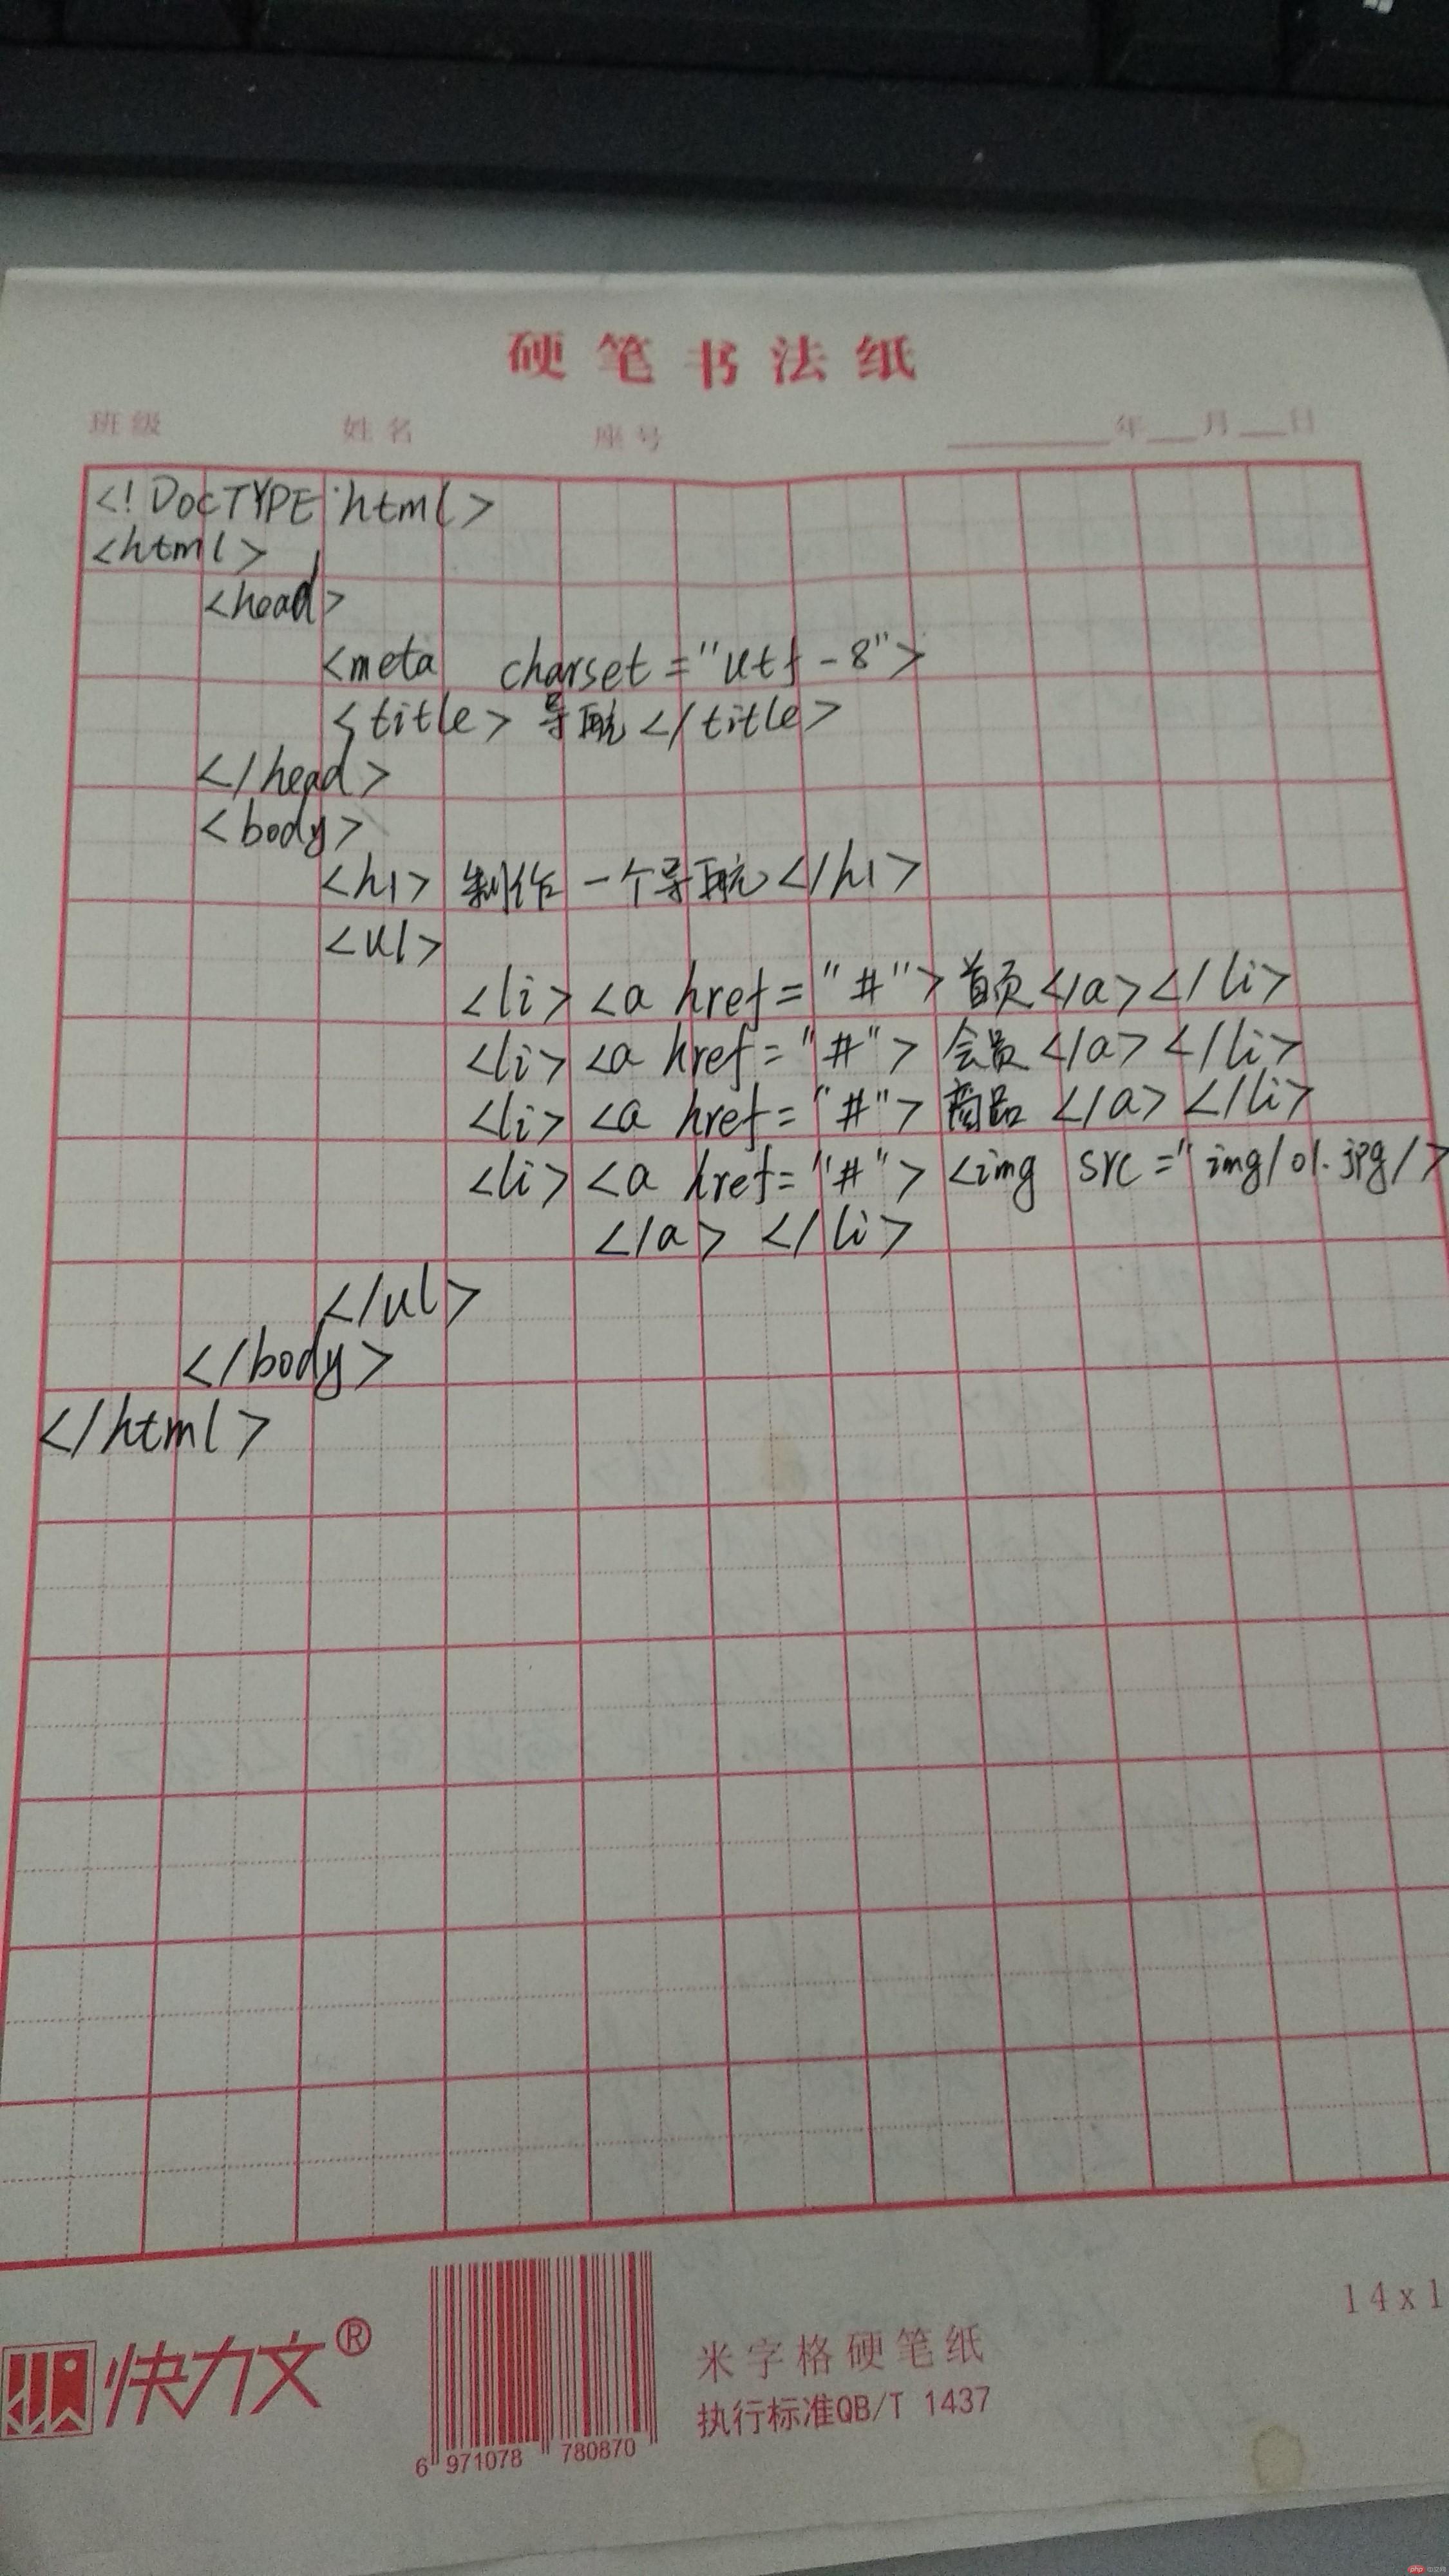 硬笔书法纸
班级 姓名 座号 年 月 日
<!DOCTYPE html>
<html>
<head>
<meta charset="utf-8">
<title>导航</title>
</head>
<body>
<h1>制作一个导航</h1>
<ul>
<li><a href="#">首页</a></li>
<li><a href="#">会员</a></li>
<li><a href="#">商品</a></li>
<li><a href="#"><img src="img/01.jpg/>
</a></li>
</ul>
</body>
</html>
14x1
快力文®
米字格硬笔纸
执行标准QB/T 1437
6 971078 780870
php 中文网